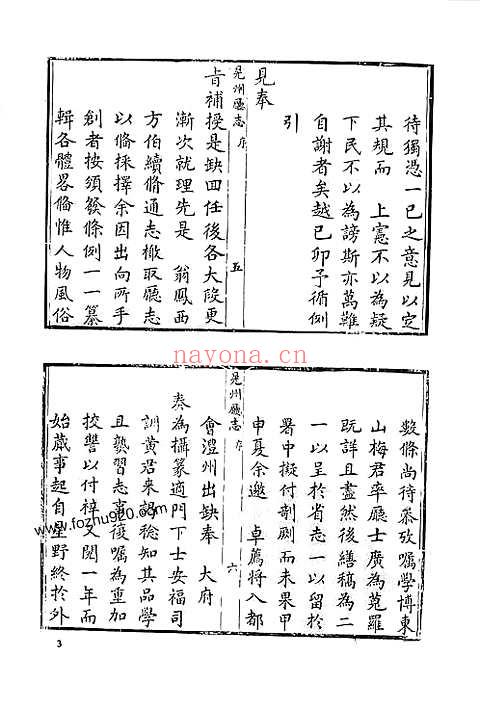 待獨憑一己之意見以定
其規而 上憲不以為疑
下民不以為謗斯亦萬難
自謝者矣越己卯予循例
引
見奉
晃州廳志 序 五
旨補授是缺回任後各大段更
漸次就理先是 翁鳳西
方伯續脩通志檄取廳志
以備採擇余因出向所手
創者按須發條例一一纂
輯各體畧備惟人物風俗
nayona.cn
數條尚待叅攷囑學博東
山梅君率廳士廣為蒐羅
既詳且盡然後繕稿為二
一以呈於省志一以留於
署中擬付剞劂而未果甲
申夏余邀 卓薦將入都
晃州廳志 序 六
會澧州出缺奉 大府
奏為攝篆適門下士安福司
訓黃君來謁稔知其品學
且爇習志事後囑為重加
挍讐以付梓又閱一年而
始蕆事起自星野終於外
www.fozhu920.com
3